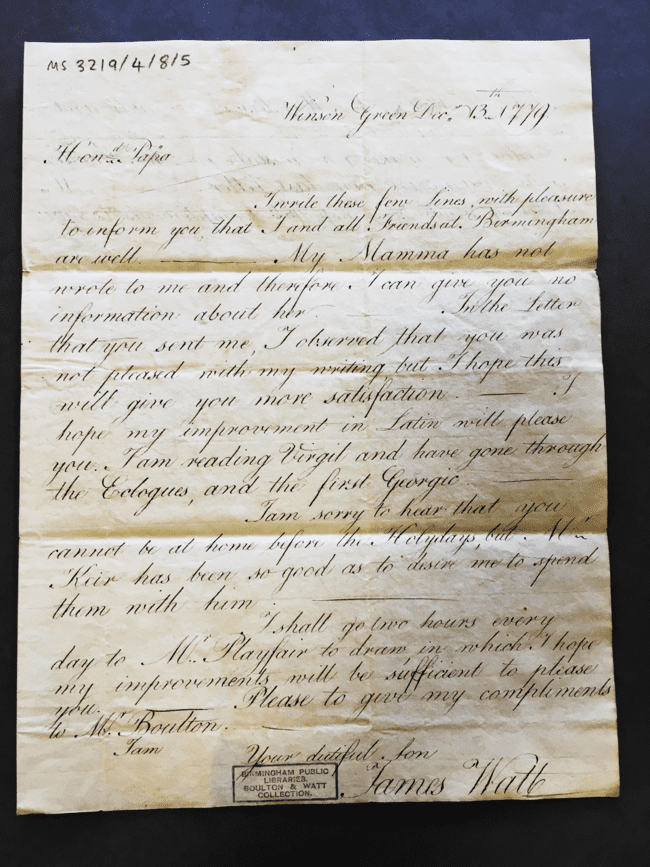 MS 3219/4/8/5
Winson Green Decr. 13th 1779.
Hond. Papa
I wrote these few lines with pleasure
to inform you that I and all Friends at Birmingham
are well. — My Mamma has not
wrote to me and therefore I can give you no
information about her. In the Letter
that you sent me, I observed that you was
not pleased with my writing but I hope this
will give you more satisfaction. — I
hope my improvement in Latin will please
you. I am reading Virgil and have gone through
the Eclogues, and the first Georgic. —
I am sorry to hear that you
cannot be at home before the Holydays, but Mr.
Keir has been so good as to desire me to spend
them with him. —
I shall go two hours every
day to Mr. Playfair to draw in which I hope
my improvements will be sufficient to please
you. — Please to give my compliments
to Mr. Boulton. —
I am
Your dutiful son
James Watt
BIRMINGHAM PUBLIC
LIBRARIES.
BOULTON & WATT
COLLECTION.